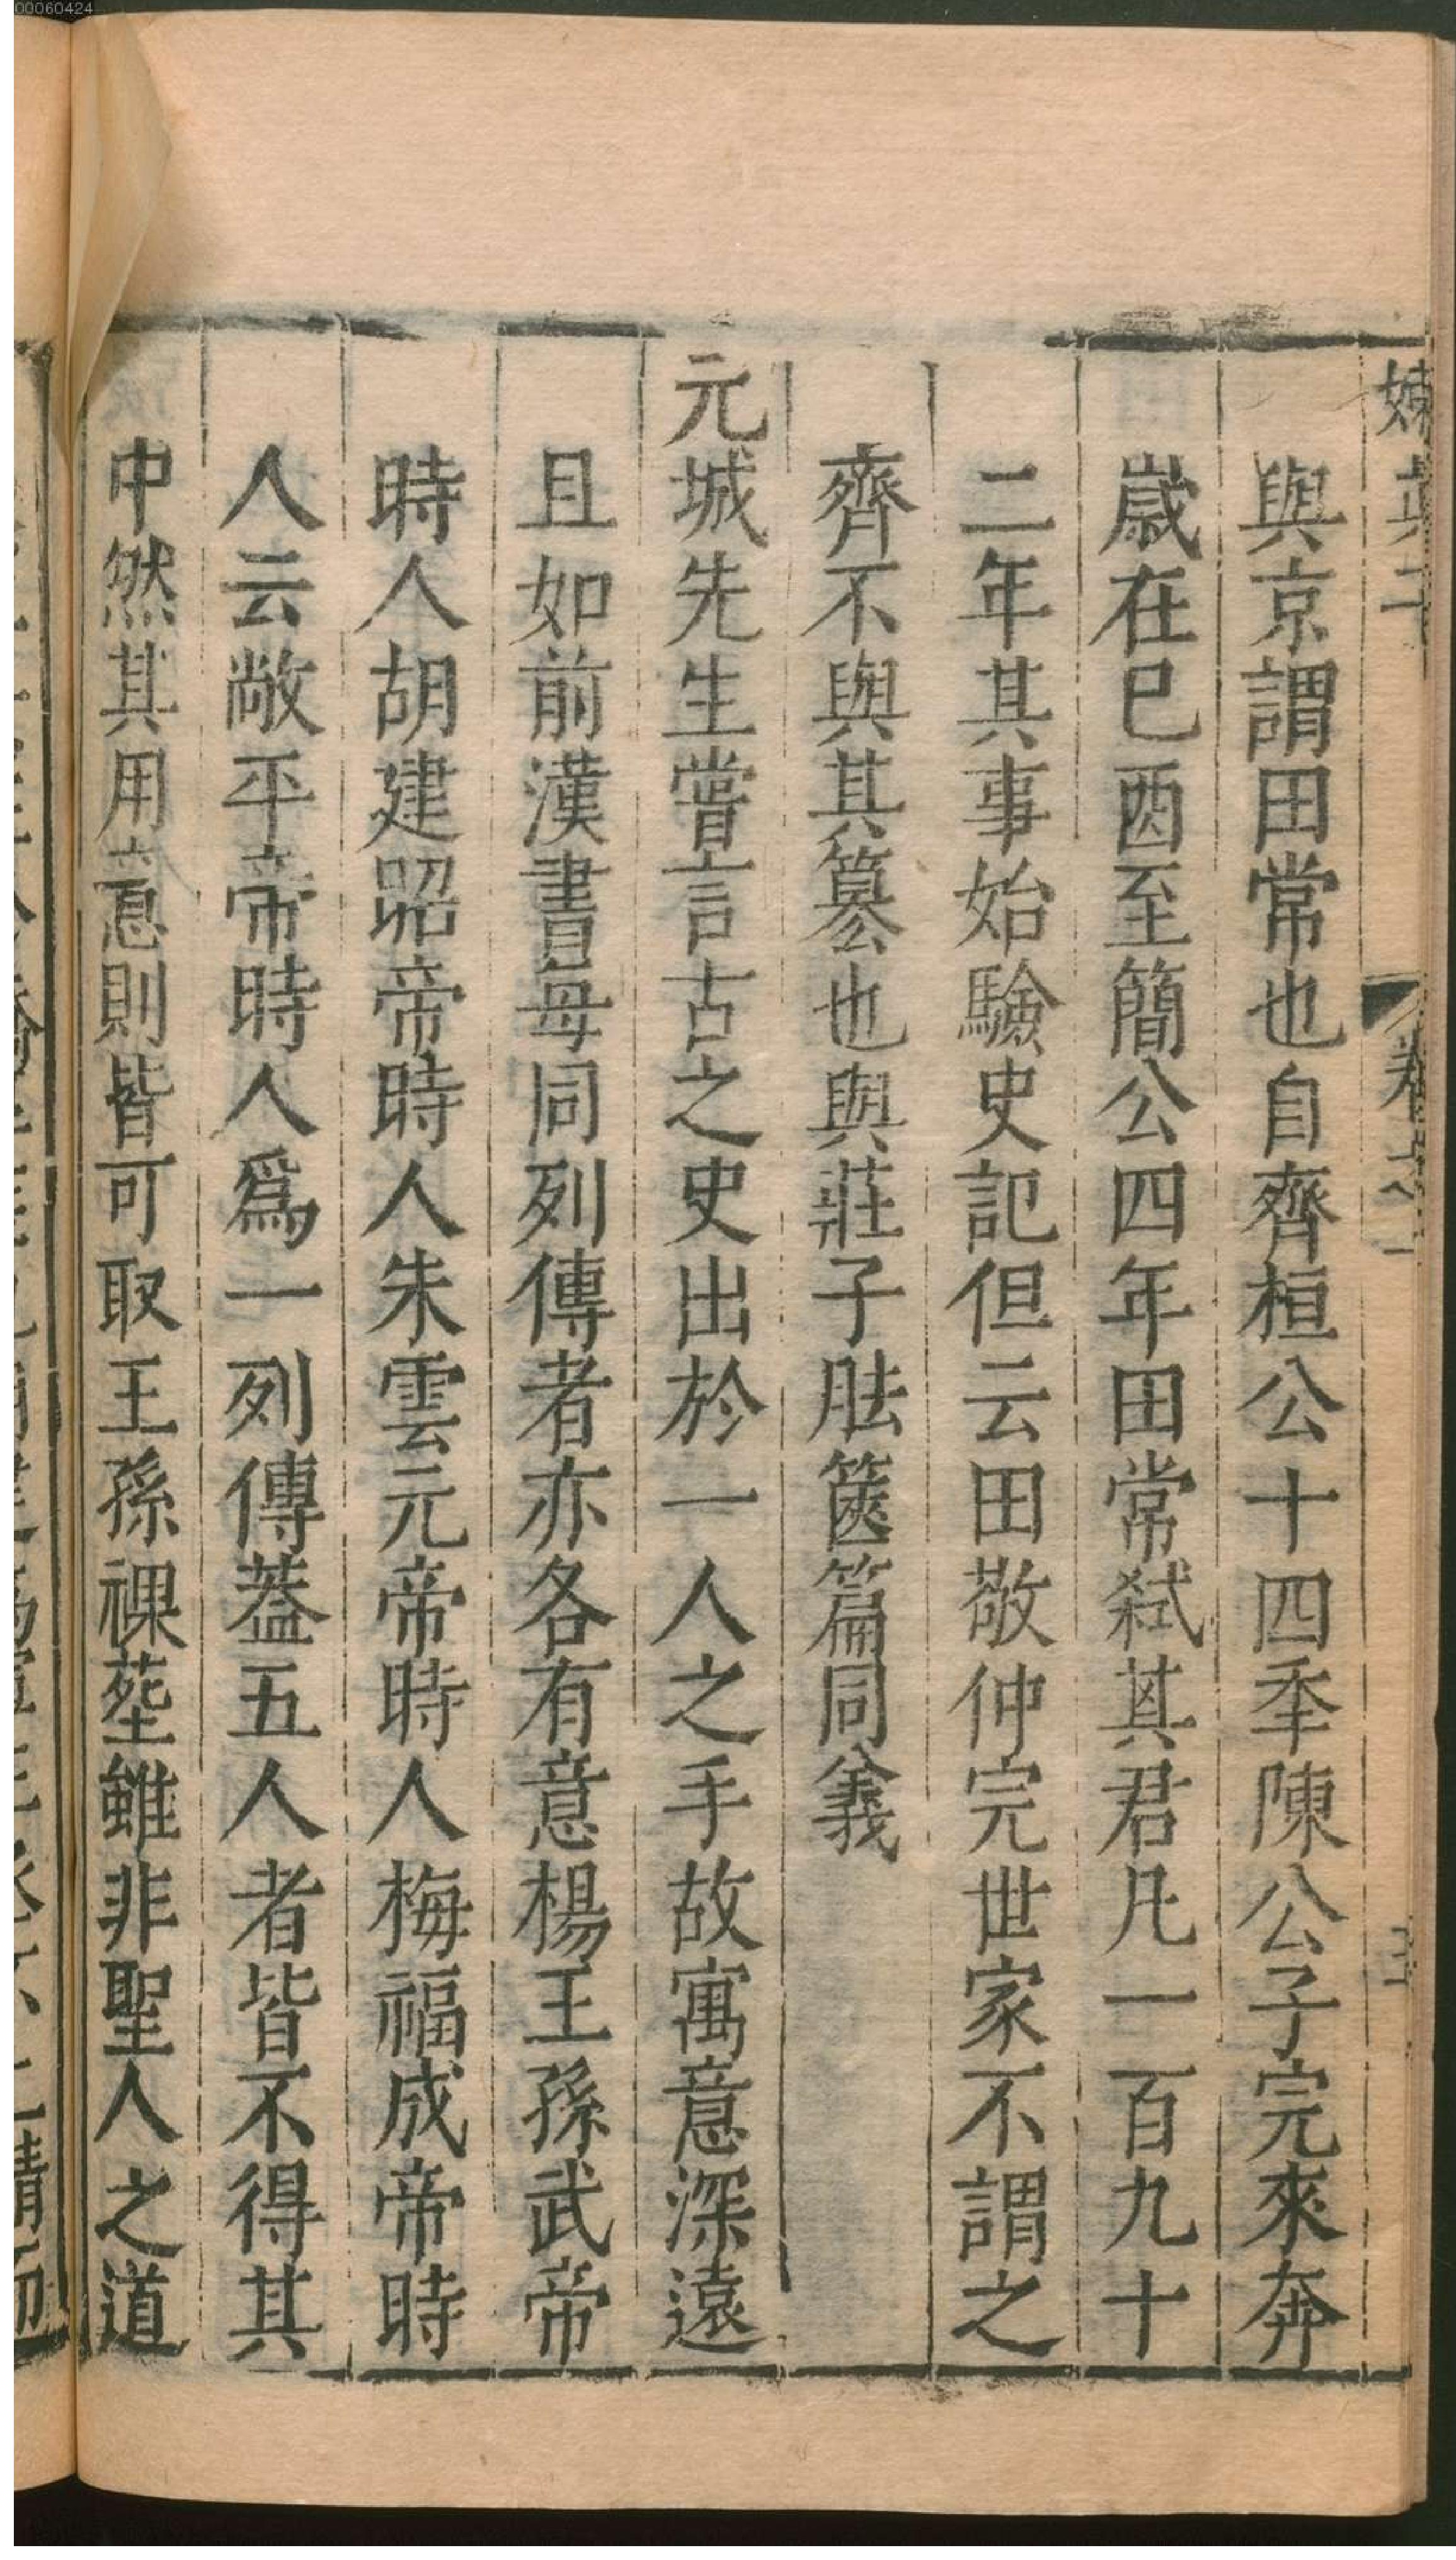 00060424
與京謂田常也自齊桓公十四秊陳公子完來奔
歲在巳酉至簡公四年田常弑其君凡一百九十
二年其事始驗史記但云田敬仲完世家不謂之
齊不與其篡也與莊子胠篋篇同義
元城先生嘗言古之史出於一人之手故寓意深遠
且如前漢書每同列傳者亦各有意楊王孫武帝
時人胡建昭帝時人朱雲元帝時人梅福成帝時
人云敞平帝時人爲一列傳葢五人者皆不得其
中然其用意則皆可取王孫裸塟雖非聖人之道